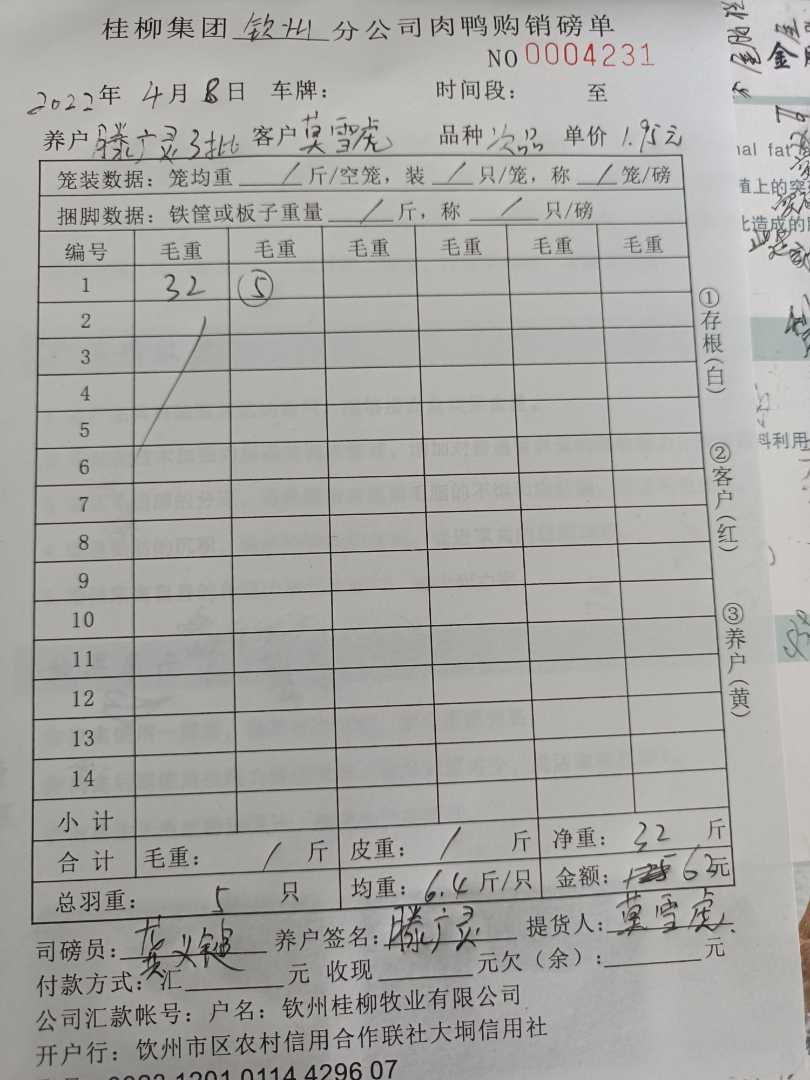 桂柳集团 钦州 分公司肉鸭购销磅单
NO 0004231
2022年 4月 8日 车牌: 时间段: 至
养户 滕广灵3批 客户 莫雪虎 品种 次品 单价 1.95元
笼装数据: 笼均重 / 斤/空笼, 装 / 只/笼, 称 / 笼/磅
捆脚数据: 铁筐或板子重量 / 斤, 称 / 只/磅
编号 毛重 毛重 毛重 毛重 毛重 毛重
1 32 ⑤
2
3
4
5
6
7
8
9
10
11
12
13
14
小计
合计 毛重: / 斤 皮重: / 斤 净重: 32 斤
总羽重: 5 只 均重: 6.4 斤/只 金额: 62元
司磅员: 养户签名: 滕广灵 提货人: 莫雪虎
付款方式: 汇 元 收现 元欠(余): 元
公司汇款帐号: 户名: 钦州桂柳牧业有限公司
开户行: 钦州市区农村信用合作联社大垌信用社
①存根(白)
②客户(红)
③养户(黄)
nal fat
植上的突
此造成的
料利用